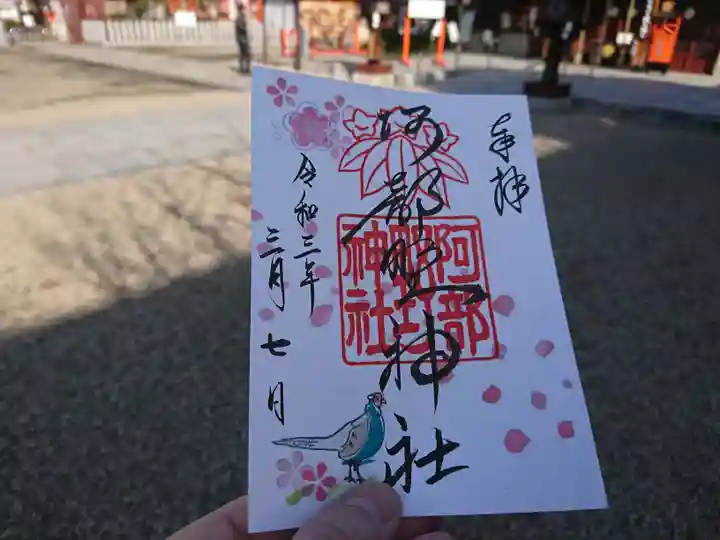 奉拝
阿部野神社
阿部
神社
令和三年
三月七日